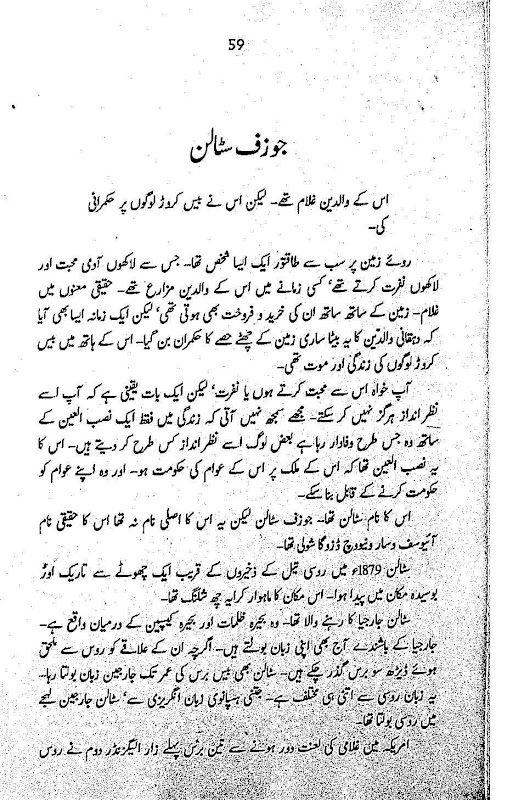 59
جوزف سٹالن
اس کے والدین غلام تھے۔ لیکن اس نے بیس کروڑ لوگوں پر حکمرانی
کی۔
روئے زمین پر سب سے طاقتور ایک ایسا شخص تھا۔ جس سے لاکھوں آدمی محبت اور
لاکھوں نفرت کرتے تھے' کسی زمانے میں اس کے والدین مزارع تھے۔ حقیقی معنوں میں
غلام۔ زمین کے ساتھ ساتھ ان کی خرید و فروخت بھی ہوتی تھی' لیکن ایک زمانہ ایسا بھی آیا
کہ دہقانی والدین کا یہ بیٹا ساری زمین کے چھٹے حصے کا حکمران بن گیا۔ اس کے ہاتھ میں بیس
کروڑ لوگوں کی زندگی اور موت تھی۔
آپ خواہ اس سے محبت کرتے ہوں یا نفرت' لیکن ایک بات یقینی ہے کہ آپ اسے
نظر انداز ہرگز نہیں کر سکتے۔ مجھے سمجھ نہیں آتی کہ زندگی میں فقط ایک نصب العین کے
ساتھ وہ جس طرح وفادار رہا ہے بعض لوگ اسے نظر انداز کس طرح کر دیتے ہیں۔ اس کا
یہ نصب العین تھا کہ اس کے ملک پر اس کے عوام کی حکومت ہو۔ اور وہ اپنے عوام کو
حکومت کرنے کے قابل بنا سکے۔
اس کا نام سٹالن تھا۔ جوزف سٹالن لیکن یہ اس کا اصلی نام نہ تھا اس کا حقیقی نام
آئیوسف وسار ونیووچ ڈزوگا شولی تھا۔
سٹالن 1879ء میں روسی تیل کے ذخیروں کے قریب ایک چھوٹے سے تاریک اور
بوسیدہ مکان میں پیدا ہوا۔ اس مکان کا ماہوار کرایہ چھ شلنگ تھا۔
سٹالن جارجیا کا رہنے والا تھا۔ وہ بحیرہ ظلمات اور بحیرہ کیسپین کے درمیان واقع ہے۔
جارجیا کے باشندے آج بھی اپنی زبان بولتے ہیں۔ اگرچہ ان کے علاقے کو روس سے ملحق
ہوئے ڈیڑھ سو برس گذر چکے ہیں۔ سٹالن بھی بیس برس کی عمر تک جارجین زبان بولتا رہا۔
یہ زبان روسی سے اتنی ہی مختلف ہے۔ جتنی ہسپانوی زبان انگریزی سے' سٹالن جارجین لہجے
میں روسی بولتا تھا۔
امریکہ میں غلامی کی لعنت دور ہونے سے تین برس پہلے زار الیگزنڈر دوم نے روس